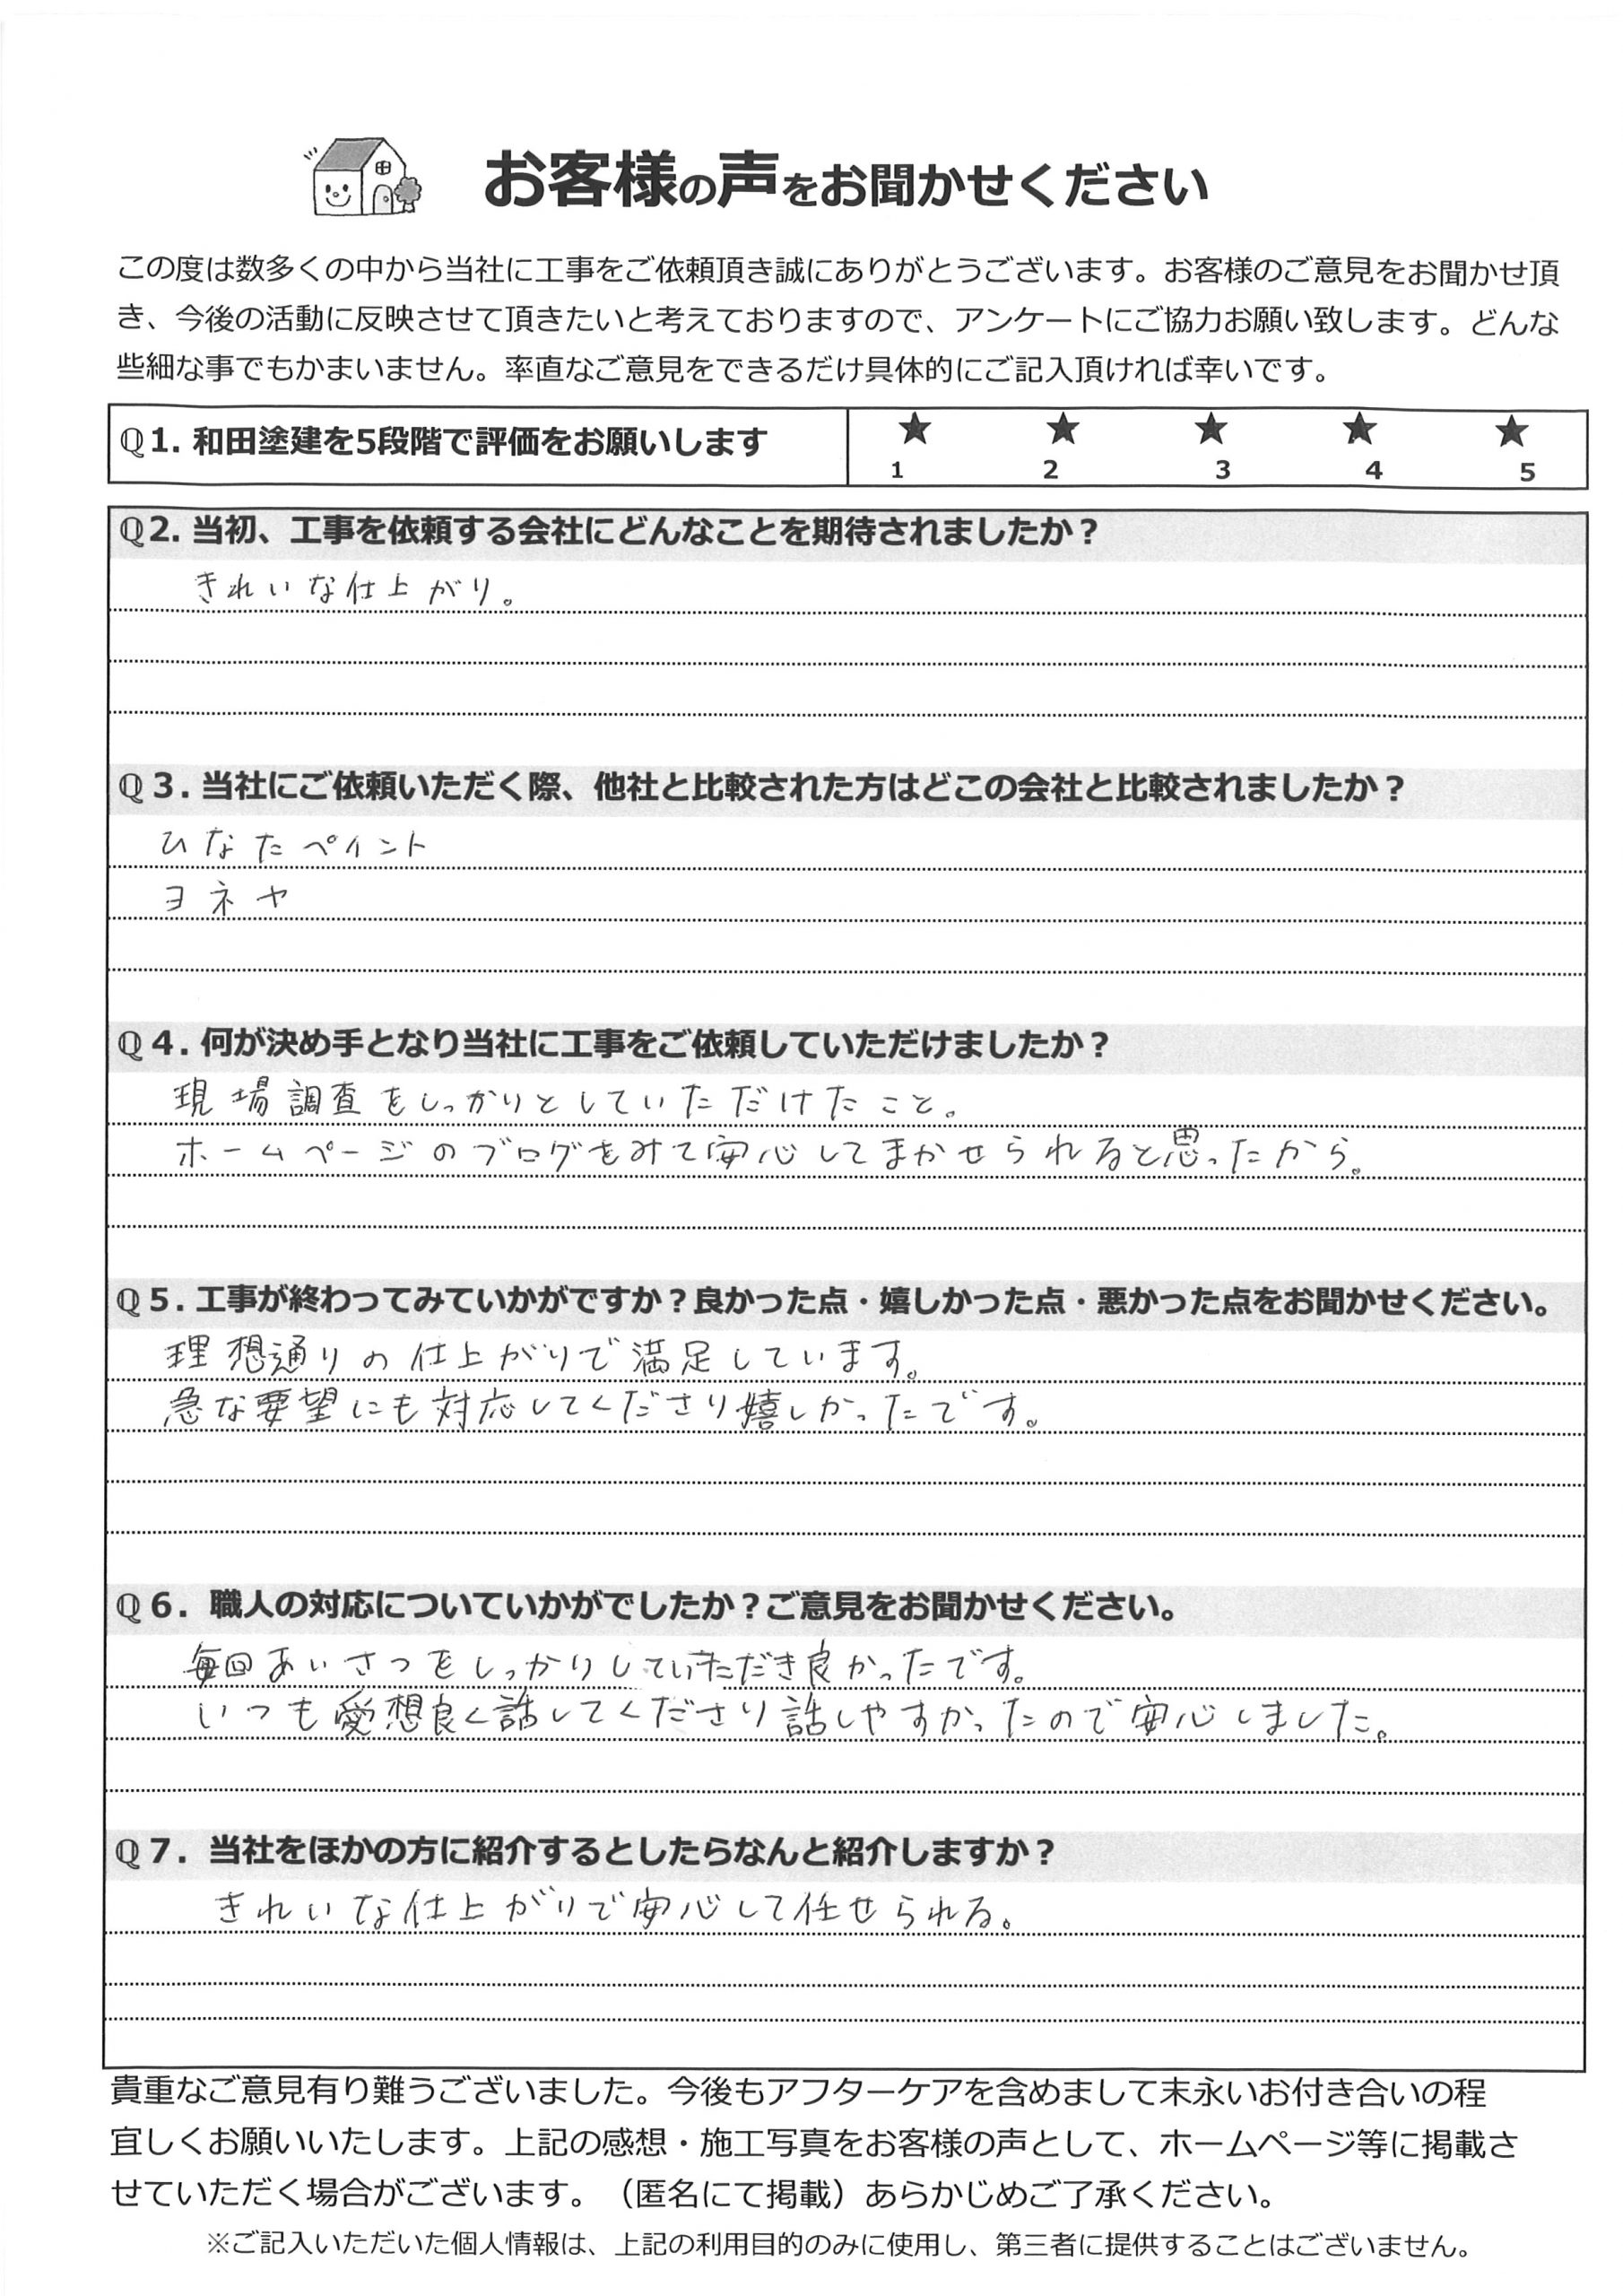 お客様の声をお聞かせください
この度は数多くの中から当社に工事をご依頼頂き誠にありがとうございます。お客様のご意見をお聞かせ頂
き、今後の活動に反映させて頂きたいと考えておりますので、アンケートにご協力お願い致します。どんな
些細な事でもかまいません。率直なご意見をできるだけ具体的にご記入頂ければ幸いです。
Q1. 和田塗建を5段階で評価をお願いします
★ ★ ★ ★ ★
1 2 3 4 5
Q2. 当初、工事を依頼する会社にどんなことを期待されましたか？
きれいな仕上がり。
Q３. 当社にご依頼いただく際、他社と比較された方はどこの会社と比較されましたか？
ひなたペイント
ヨネヤ
Q４. 何が決め手となり当社に工事をご依頼していただけましたか？
現場調査をしっかりとしていただけたこと。
ホームページのブログをみて安心してまかせられると思ったから。
Q５. 工事が終わってみていかがですか？良かった点・嬉しかった点・悪かった点をお聞かせください。
理想通りの仕上がりで満足しています。
急な要望にも対応してくださり嬉しかったです。
Q６. 職人の対応についていかがでしたか？ご意見をお聞かせください。
毎回あいさつをしっかりしていただき良かったです。
いつも愛想良く話してくださり話しやすかったので安心しました。
Q７. 当社をほかの方に紹介するとしたらなんと紹介しますか？
きれいな仕上がりで安心して任せられる。
貴重なご意見有り難うございました。今後もアフターケアを含めまして末永いお付き合いの程
宜しくお願いいたします。上記の感想・施工写真をお客様の声として、ホームページ等に掲載さ
せていただく場合がございます。（匿名にて掲載）あらかじめご了承ください。
※ご記入いただいた個人情報は、上記の利用目的のみに使用し、第三者に提供することはございません。